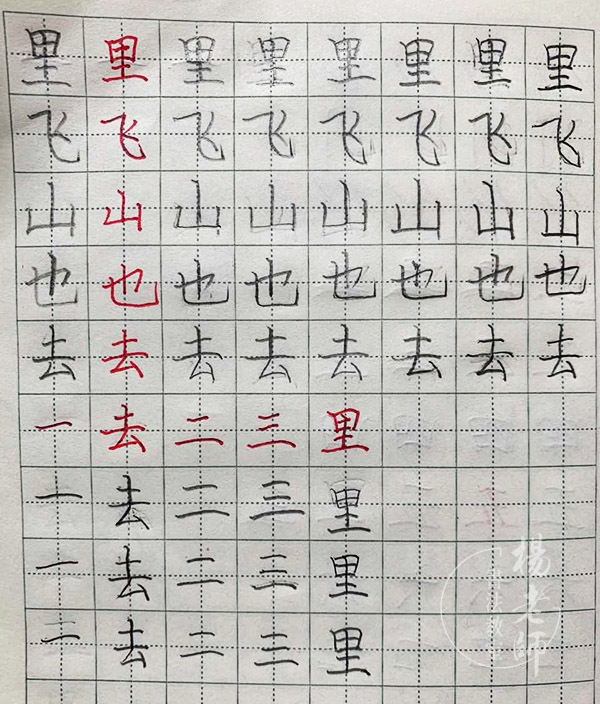 里里里里里里里里
飞飞飞飞飞飞飞飞
山山山山山山山山
也也也也也也也也
去去去去去去去去
一去二三里
一去二三里
一去二三里
一去二三里
楊老師